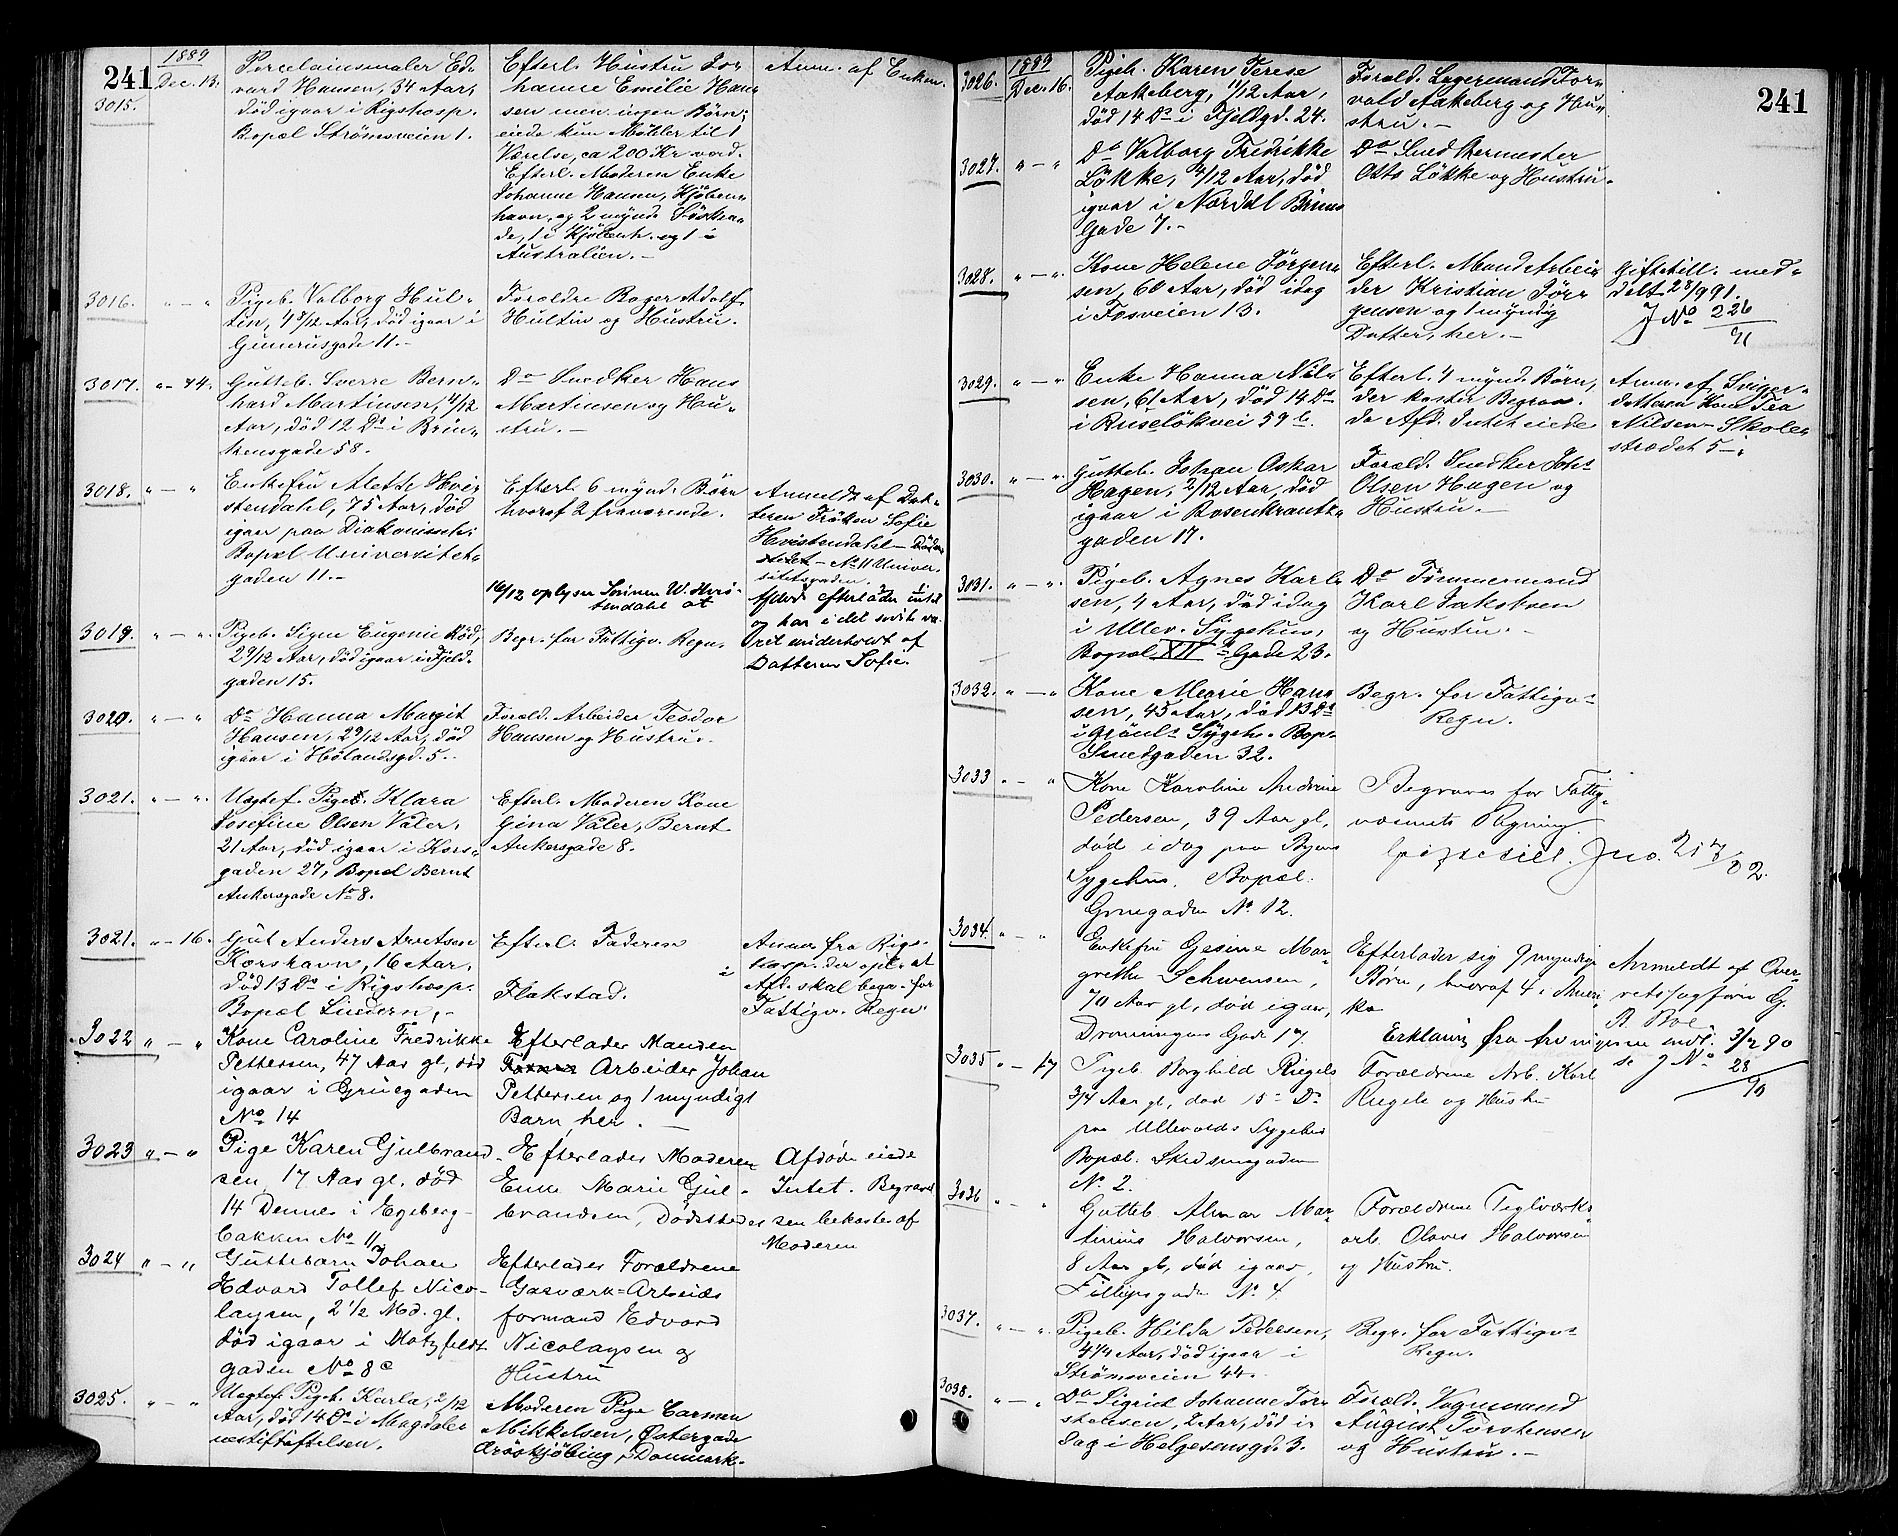 241
1889
Dec. 13.
3015.
Porcelainsmaler Ed-
vard Hansen, 34 Aar,
död igaar i Rigshosp.
Bopæl Strömsveien 1.
Efterl. Hustru Jo-
hanne Emilie Han-
sen men ingen Børn;
eiede kun Møbler til 1
Værelse, ca 200 Kr værd.
Efterl. Moderen Enke
Johanne Hansen, Kjöben-
havn, og 2 mynd. Söskende,
1 i Kjöbenh. og 1 i
Australien. —
Anm. af Enken.
3016. " — "
Pigeb. Valborg Hul-
tin, 4 8/12 Aar, död igaar i
Gunerusgade 11. —
Foræld. Roger Adolf
Hultin og Hustru.
3017. " — 14.
Gutteb. Sverre Bern-
hard Martinsen, 4/12
Aar, död 12 Ds i Brin-
kensgade 58.
Do Snedker Hans
Martinsen og Hu-
stru. —
3018. " — "
Enkefru Alette Hvi-
stendahl, 75 Aar, död
igaar paa Diakonisseh.
Bopæl Universitets-
gaden 11. —
Efterl. 6 mynd. Börn
hvoraf 2 fraværende.
16/12 oplyser Sönnen W. Hvis-
tendahl at
Anmeldt af Dat-
teren Fröken Sofie
Hvistendahl —
— No 11 Univer-
sitetsgaden.
Afdöde efterlader intet
og har i det sidste væ-
ret underholdt af
Datteren Sofie.
3019. " — "
Pigeb. Signe Eugenie Röd,
2 9/12 Aar, död igaar i Fjeld-
gaden 15.
Begr. for Fattigv. Regn.
3020. " — "
Do Hanna Margit
Hansen, 2 9/12 Aar, död
igaar i Hölandsgd. 5.
Foræld. Arbeider Teodor
Hansen og Hustru.
3021. " — "
Uægtef. Pigeb. Klara
Josefine Olsen Valer,
21 Aar, död igaar i Kors-
gaden 27, Bopæl Bernt
Ankersgade No 8.
Efterl. Moderen Kone
Gina Valer, Bernt
Ankersgade 8.
3021. " — 16.
Gut Anders Arntsen
Korshavn, 16 Aar,
Död 13 Ds i Rigshosp.
Bopæl Lindern. —
Efterl. Faderen
i
Flakstad.
Anm. fra Rigs-
hosp. der opl. at
Afd. skal begr. for
Fattigv. Regn.
3022 " — "
Kone Caroline Fredrikke
Pettersen, 47 Aar gl, död
igaar i Grünegaden
No 14
Efterlader Manden
Arbeider Johan
Pettersen og 1 myndigt
Barn, her. —
3023 " — "
Pige Karen Gulbrand-
sen, 17 Aar gl, död
14 Dennes i Egeberg-
bakken No 11
Efterlader Moderen
Enke Marie Gul-
brandsen, Dödsstedet
Afdöde eiede
Intet. Begravel-
sen bekostes af
Moderen
3024 " — "
Guttebarn Johan
Edvard Tollef Nico-
laysen, 2 1/2 Md. gl.
död igaar i Motzfeldt
gaden No 8 c
Efterlader Forældrene
Gasværk-Arbeids
formand Edvard
Nicolaysen og
Hustru
3025. " — "
Uægtef. Pigeb. Karla, 2/12
Aar, död 14 Ds i Magdale-
nestiftelsen.
Moderen Pige Carmen
Mikkelsen, Østergade
Ærøskjöbing, Danmark.
241
3026. 1889
Dec. 16.
Pigeb. Karen Terese
Aakeberg, 11/12 Aar,
död 14 Ds i Fjeldgd. 24.
Foræld. Lagermand Tor-
vald Aakeberg og Hu-
stru. —
3027. " — "
Do Valborg Fredrikke
Lökke, 4/12 Aar, död
igaar i Nordal Bruns
Gade 7. —
Do Snedkermester
Otto Lökke og Hustru.
3028. " — "
Kone Helene Jörgen-
sen, 60 Aar, död idag
i Fosveien 13.
Efterl. Mand Arbei-
der Kristian Jör-
gensen og 1 myndig
Datter, her. —
Giftetill. med-
delt 28/9 91.
J No 226/91
3029. " — "
Enke Hanna Nil-
sen, 61 Aar, död 14 Ds
i Ruselökvei 59 b.
Efterl. 4 mynd. Börn,
der koster Begrav.
da Afd. Intet eiede
Anm. af Sviger-
datteren Kone Tea
Nilsen — Skole-
strædet 5 —
3030. " — "
Gutteb. Johan Oskar
Hagen, 2/12 Aar, död
igaar i Rosenkrantz-
gaden 17.
Foræld. Snedker Johs
Olsen Hagen og
Hustru. —
3031. " — "
Pigeb. Agnes Karl-
sen, 4 Aar, död idag
i Ullev. Sygehus,
Bopæl XII Gade 23.
Do Tömmermand
Karl Jakobsen
og Hustru. —
3032. " — "
Kone Marie Han-
sen, 45 Aar, död 13 Ds
i Grönl. Sygeh. Bop.
Smedgaden 32.
Begr. for Fattigv.
Regn.
3033 " — "
Kone Karoline Andrine
Pedersen, 39 Aar gl,
död i dag paa Byens
Sygehus. Bopæl:
Grünegaden No 12.
Begraves for Fattig-
væsnets Regning.
Giftetill. Jno. 217/02.
3034. " — "
Enkefru Gesine Mar-
grethe Schwensen,
70 Aar gl, död igaar,
Dronningens Gade 17.
Efterlader sig 9 myndige
Børn, hvoraf 4 i Ameri-
ka
Erklæring fra Arvingerne indl. 3/2 90
se J No 28/90
Anmeldt af Over-
retssagfører G.
B. Boe
3035 " — 17
Pigeb Borghild Riegels
3/4 Aar gl, död 15 Ds
paa Ullevolds Sygehus
Bopæl: Skedsmogaden
No. 2.
Forældrene Arb. Karl
Riegels og Hustru
3036 " — "
Gutteb Almar Mar-
tinius Halvorsen,
8 Aar gl, död igaar,
Fillipsgaden No 4
Forældrene Teglværks-
arb. Olaves Halvorsen
og Hustru.
3037. " — "
Pigeb. Hilda Pedersen,
4 1/4 Aar, död igaar i
Strömsveien 44.
Begr. for Fattigv.
Regn.
3038. " — "
Do Sigrid Johanne Tor-
stensen, 2 Aar, död i
Dag i Helgesensgd. 3.
Foræld. Vognmand
August Torstensen
og Hustru. —